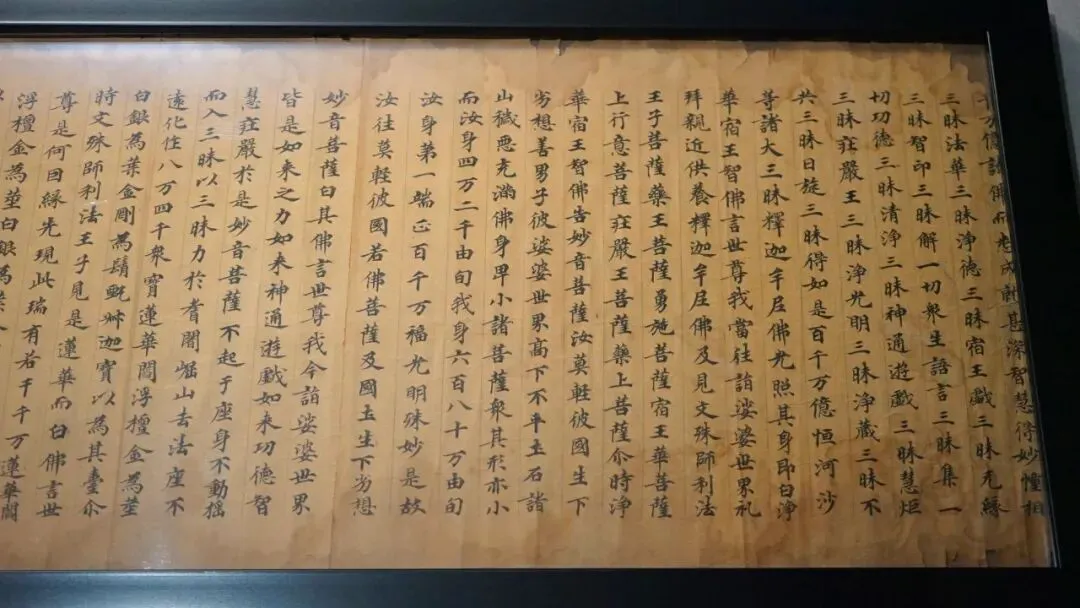 万億諸佛而悉成就甚深智慧得妙幢相
三昧法華三昧淨德三昧宿王戲三昧无緣
三昧智印三昧解一切衆生語言三昧集一
切功德三昧清淨三昧神通遊戲三昧慧炬
三昧莊嚴王三昧淨光明三昧淨藏三昧不
共三昧日旋三昧得如是百千万億恒河沙
等諸大三昧釋迦牟尼佛光照其身即白淨
華宿王智佛言世尊我當往詣娑婆世界礼
拜親近供養釋迦牟尼佛及見文殊師利法
王子菩薩藥王菩薩勇施菩薩宿王華菩薩
上行意菩薩莊嚴王菩薩藥上菩薩尒時淨
華宿王智佛告妙音菩薩汝莫軽彼國生下
劣想善男子彼娑婆世界高下不平土石諸
山穢惡充滿佛身卑小諸菩薩衆其形亦小
而汝身四万二千由旬我身六百八十万由旬
汝身第一端正百千万福光明殊妙是故
汝往莫軽彼國若佛菩薩及國土生下劣想
妙音菩薩白其佛言世尊我今詣娑婆世界
皆是如来之力如来神通遊戲如来功德智
慧莊嚴於是妙音菩薩不起于座身不動揺
而入三昧以三昧力於耆闍崛山去法座不
遠化作八万四千衆寶蓮華閻浮檀金為莖
白銀為葉金剛為鬚甄叔迦寶以為其臺尒
時文殊師利法王子見是蓮華而白佛言世
尊是何因緣先現此瑞有若干千万蓮華閻
浮檀金為莖白銀為葉